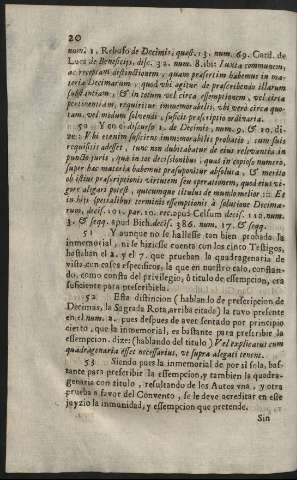 20
num. 1. Rebufo de Decimis, quæst. 13. num. 69. Card. de
Luca de Beneficijs, disc. 32. num. 8. ibi: Iuxta communem,
ac receptam distinctionem, quam præsertim habemus in ma-
teria Decimarum, quod vbi agitur de præscribenda illarum
substantiam, & in totum vel circa essemptionem, vel circa
pertinentiam, requiritur immemorabilis, vbi vero circa quo-
tam, vel modum solvendi, suficit præscriptio ordinaria.
50 Y en el discurso 1. de Decimis, num. 9. & 10. di-
ze: Vbi etenim suficiens immemorabilis probatio, cum suis
requisitis adesset, tunc non dubitabatur de eius relevantia in
puncto iuris, quia in tot decisionibus, quas in copioso numero,
super hac materia habemus præsuponitur absoluta, & merito
ob istius præscriptionis virtutem seu operationem, quod eius vi-
gore alegari potest, quicumque titulus de mundo melior::: Et
in his spetialibus terminis essemptionis à solutione Decima-
rum, decis. 101. par. 10. rec. apud Celsum decis. 120. num.
3. & seqq. apud Bich. decis. 386. num. 17. & seqq.
51 Y aunque no se hallasse tan bien probada la
inmemorial, ni se hiziesse cuenta con los cinco Testigos,
bastaban el 2. y el 7. que prueban la quadragenaria de
vista, con casos especificos, la que en nuestro caso, constan-
do, como consta del privilegio, ò titulo de essempcion, era
suficiente para prescribirla.
52 Esta distincion (hablando de prescripcion de
Decimas, la Sagrada Rota, arriba citada) la tuvo presente
en el num. 2. pues despues de aver sentado por principio
cierto, que la inmemorial, es bastante para prescribir la
essempcion. dize: (hablando del titulo) Vel explicatus cum
quadragenaria esset necessarius, vt supra alegati tenent.
53 Siendo pues la inmemorial de por sì sola, bas-
tante para prescribir la essempcion, y tambien la quadra-
genaria con titulo, resultando de los Autos vna, y otra
prueba à favor del Convento, se le deve acreditar en este
juyzio la inmunidad, y essempcion que pretende.
Sin